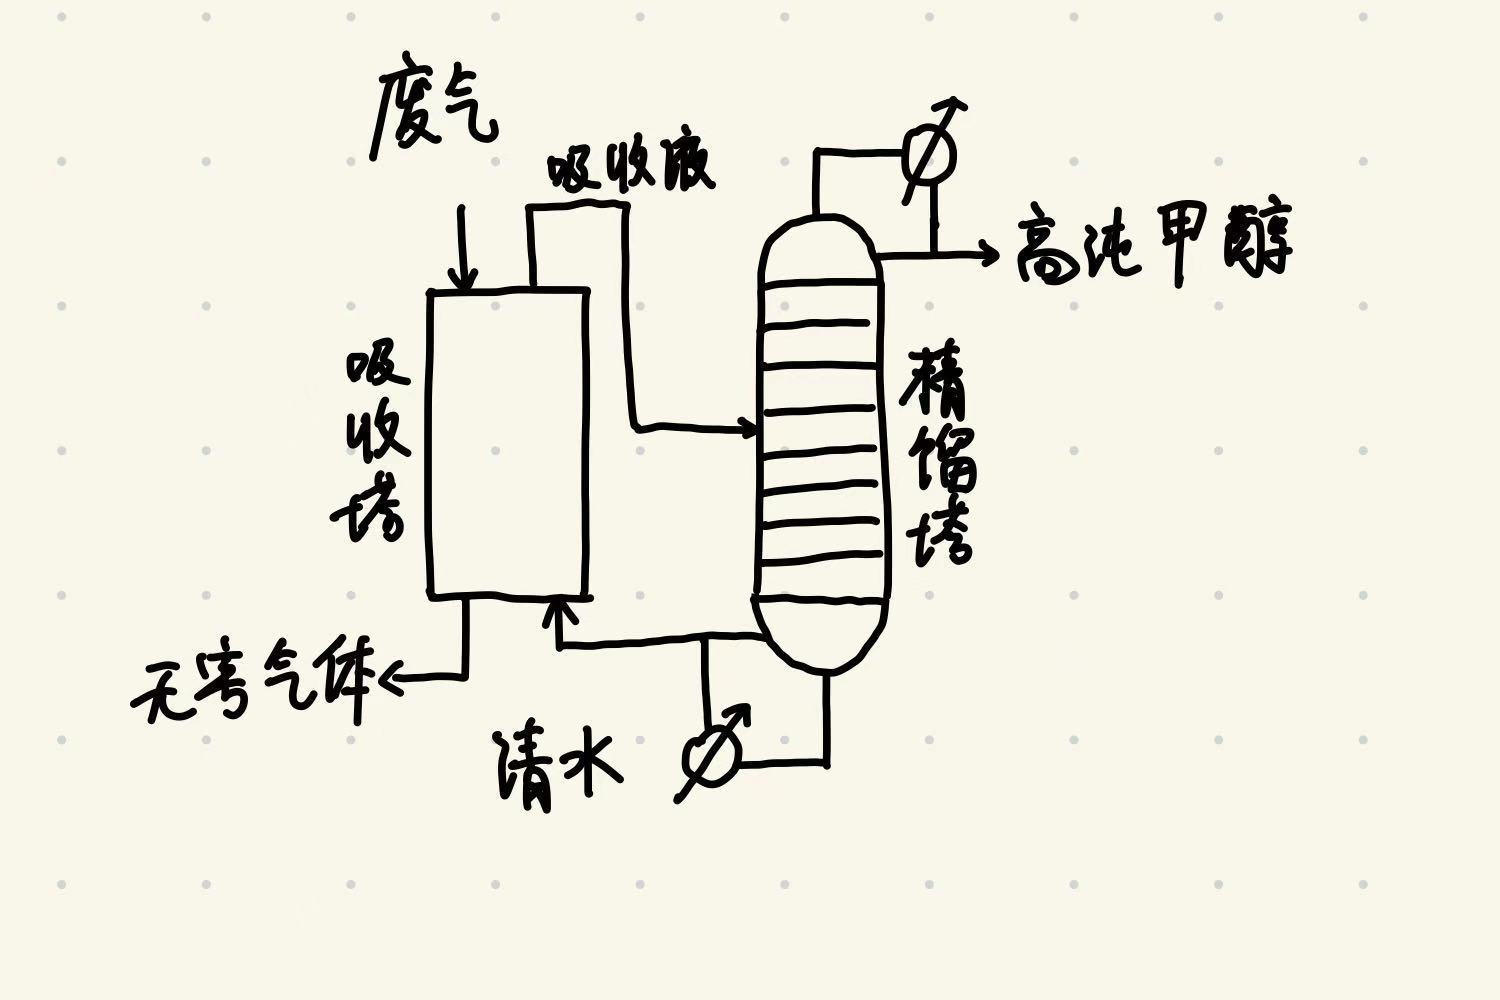 废气
吸收液
高纯甲醇
吸收塔
精馏塔
无害气体
清水